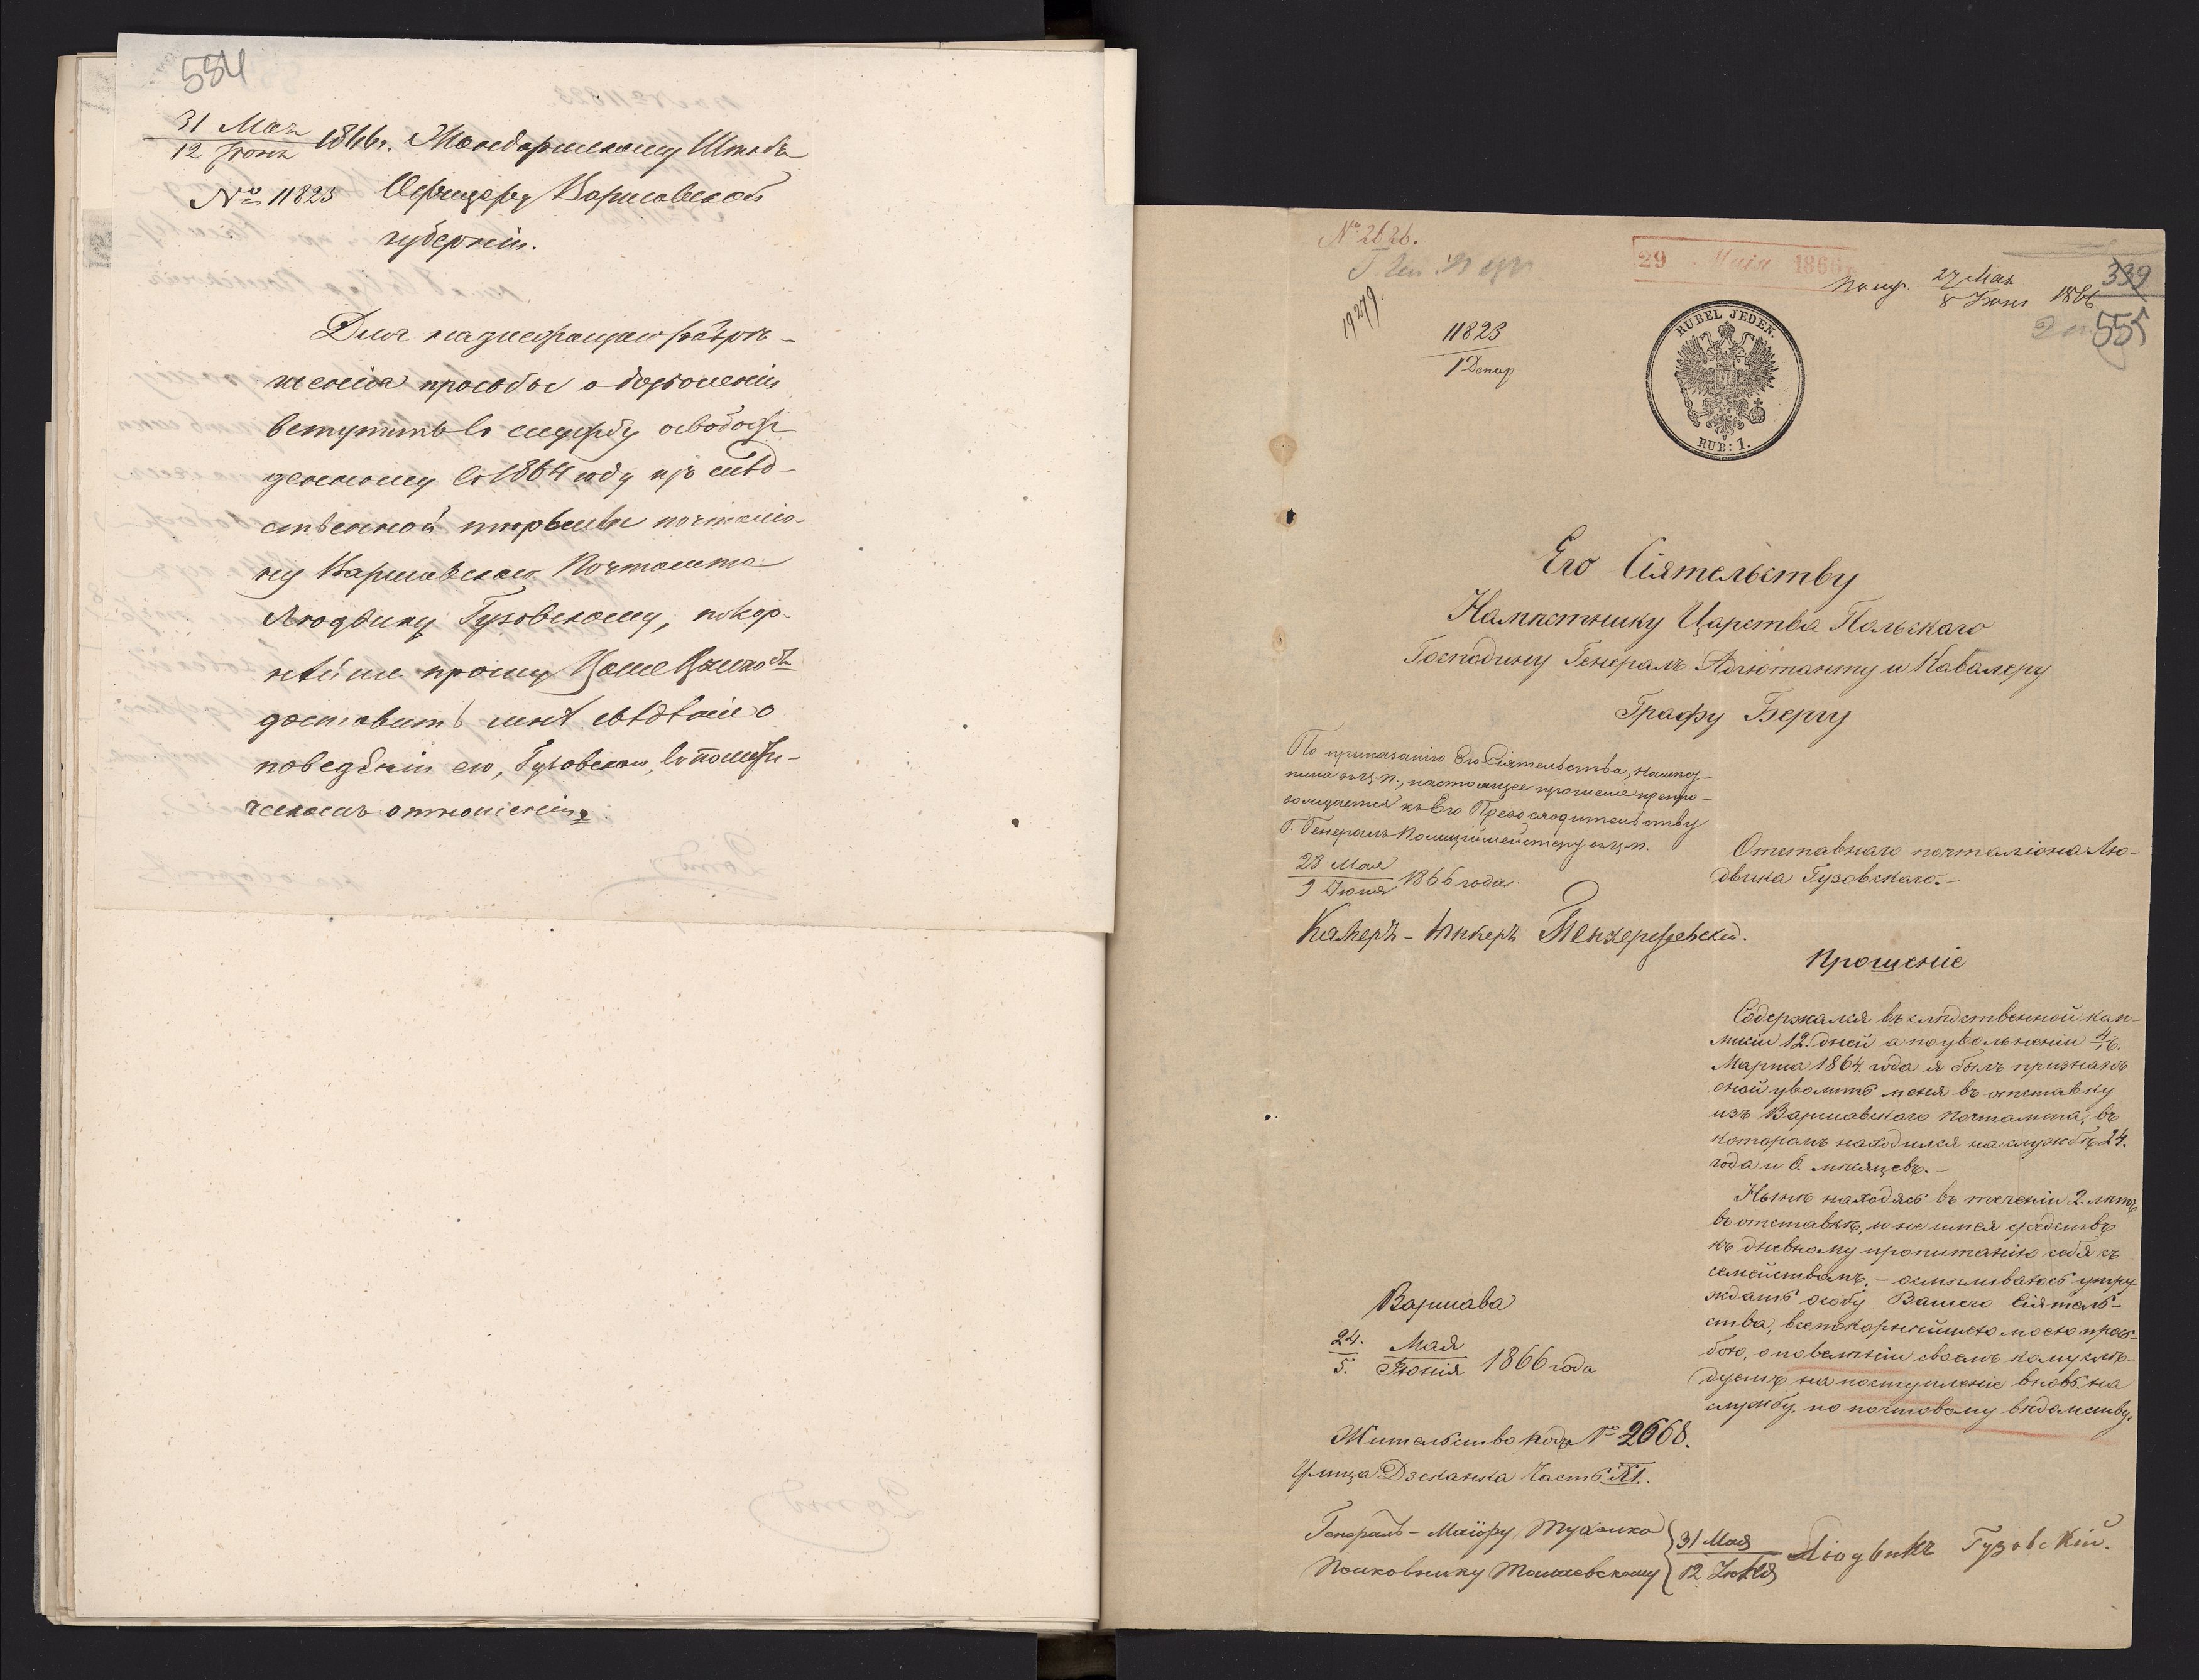 554
31 Мая
12 Іюня 1866 г. Жандармскому Штабъ
№ 11823 Офицеру Варшавской
губерніи.
Для надлежащаго разрѣ-
женія просьбы о дозволеніи
вступить въ службу освобож-
денному въ 1864 году изъ слѣд-
ственной тюрьмы почталіо-
ну Варшавскаго Почтамта
Людвику Гузовскому, покор-
нѣйше прошу Ваше
доставить мнѣ свѣдѣніе о
поведеніи его, Гузовскаго, въ полити-
ческомъ отношеніи.
№ 2626.
29 Маія 1866
Получ. 27 Мая
8 Іюня 1866
339
555
19279
11823
1 Декор
RUBEL JEDEN.
RUB: 1.
Его Сіятельству
Намѣстнику Царства Польскаго
Господину Генералъ Адъютанту и Кавалеру
Графу Бергу
По приказанію Его Сіятельства, Намѣст-
ника въ Ц. П., настоящее прошеніе препро-
вождается къ Его Превосходительству
Г. Генералъ Полиціймейстеру въ Ц. П.
28 Мая
9 Іюня 1866 года.
Камеръ-Юнкеръ
Отставнаго почталіона Лю-
двика Гузовскаго.-
Прошеніе
Содержался въ слѣдственной кан-
12. дней а по увольненіи 4/16.
Марта 1864 года я былъ признанъ
оной уволить меня въ отставку
изъ Варшавскаго Почтамта, въ
которомъ находился на службѣ 24.
года и 6. мѣсяцевъ.-
Нынѣ находясь въ теченіи 2. лѣтъ
въ отставкѣ, и не имѣя средствъ
къ дневному пропитанію себя съ
семействомъ, - осмѣливаюсь утру-
ждать особу Вашего Сіятель-
ства, всепокорнѣйшею моею прозь-
бою, о повелѣніи своемъ кому слѣ-
дуетъ на поступленіе вновь на
службу, по почтовому вѣдомству.
Варшава
24. Мая
5. Іюнія 1866 года
Жительство подъ № 2668.
Улица Дзеканка Часть XI.
Генералъ-Маіору Тухолко
Полковнику
31 Мая
12 Іюня
Людвикъ Гузовскій.